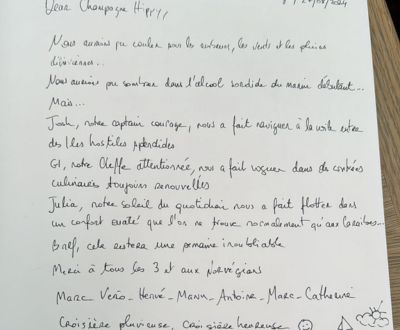 Dear Champagne Hippy,
24/08/2024
Nous aurions pu couler sous les averses, les vents et les pluies
diluviennes...
Nous aurions pu sombrer dans l'alcool sordide du marin débutant...
Mais...
Josh, notre captain courage, nous a fait naviguer à la voile entre
des îles hostiles splendides
Gt, notre Cheffe attentionnée, nous a fait voguer dans des contrées
culinaires toujours renouvellés
Julia, notre soleil du quotidien nous a fait flotter dans
un confort ouaté que l'on ne trouve normalement qu'aux Caraïbes...
Bref, cela restera une semaine inoubliable
Merci à tous les 3 et aux Norvégiens
Marc - Véro - Hervé - Manu - Antoine - Marc - Catherine
Croisière pluvieuse, Croisière heureuse